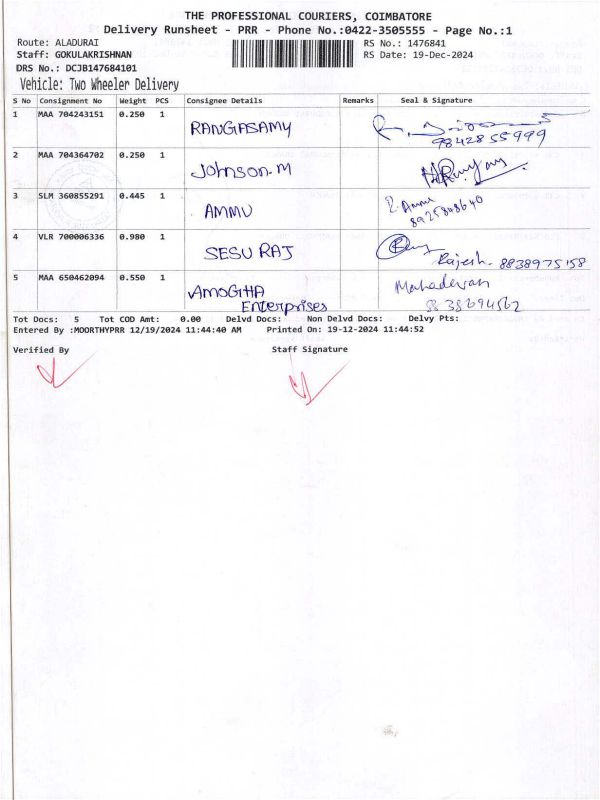 THE PROFESSIONAL COURIERS, COIMBATORE
Delivery Runsheet - PRR - Phone No.:0422-3505555 - Page No.:1
Route: ALADURAI RS No.: 1476841
Staff: GOKULAKRISHNAN RS Date: 19-Dec-2024
DRS No.: DCJB147684101
Vehicle: Two Wheeler Delivery
S No Consignment No Weight PCS Consignee Details Remarks Seal & Signature
1 MAA 704243151 0.250 1 RANGASAMY
9842855999
2 MAA 704364702 0.250 1 Johnson.M
3 SLM 360855291 0.445 1 AMMU R. Ammu
4 VLR 700006336 0.980 1 SESU RAJ
Rajesh. 8838975158
5 MAA 650462094 0.550 1 AMOGHA Mahadevan
Enterprises
Tot Docs: 5 Tot COD Amt: 0.00 Delvd Docs: Non Delvd Docs: Delvy Pts:
Entered By :MOORTHYPRR 12/19/2024 11:44:40 AM Printed On: 19-12-2024 11:44:52
Verified By Staff Signature